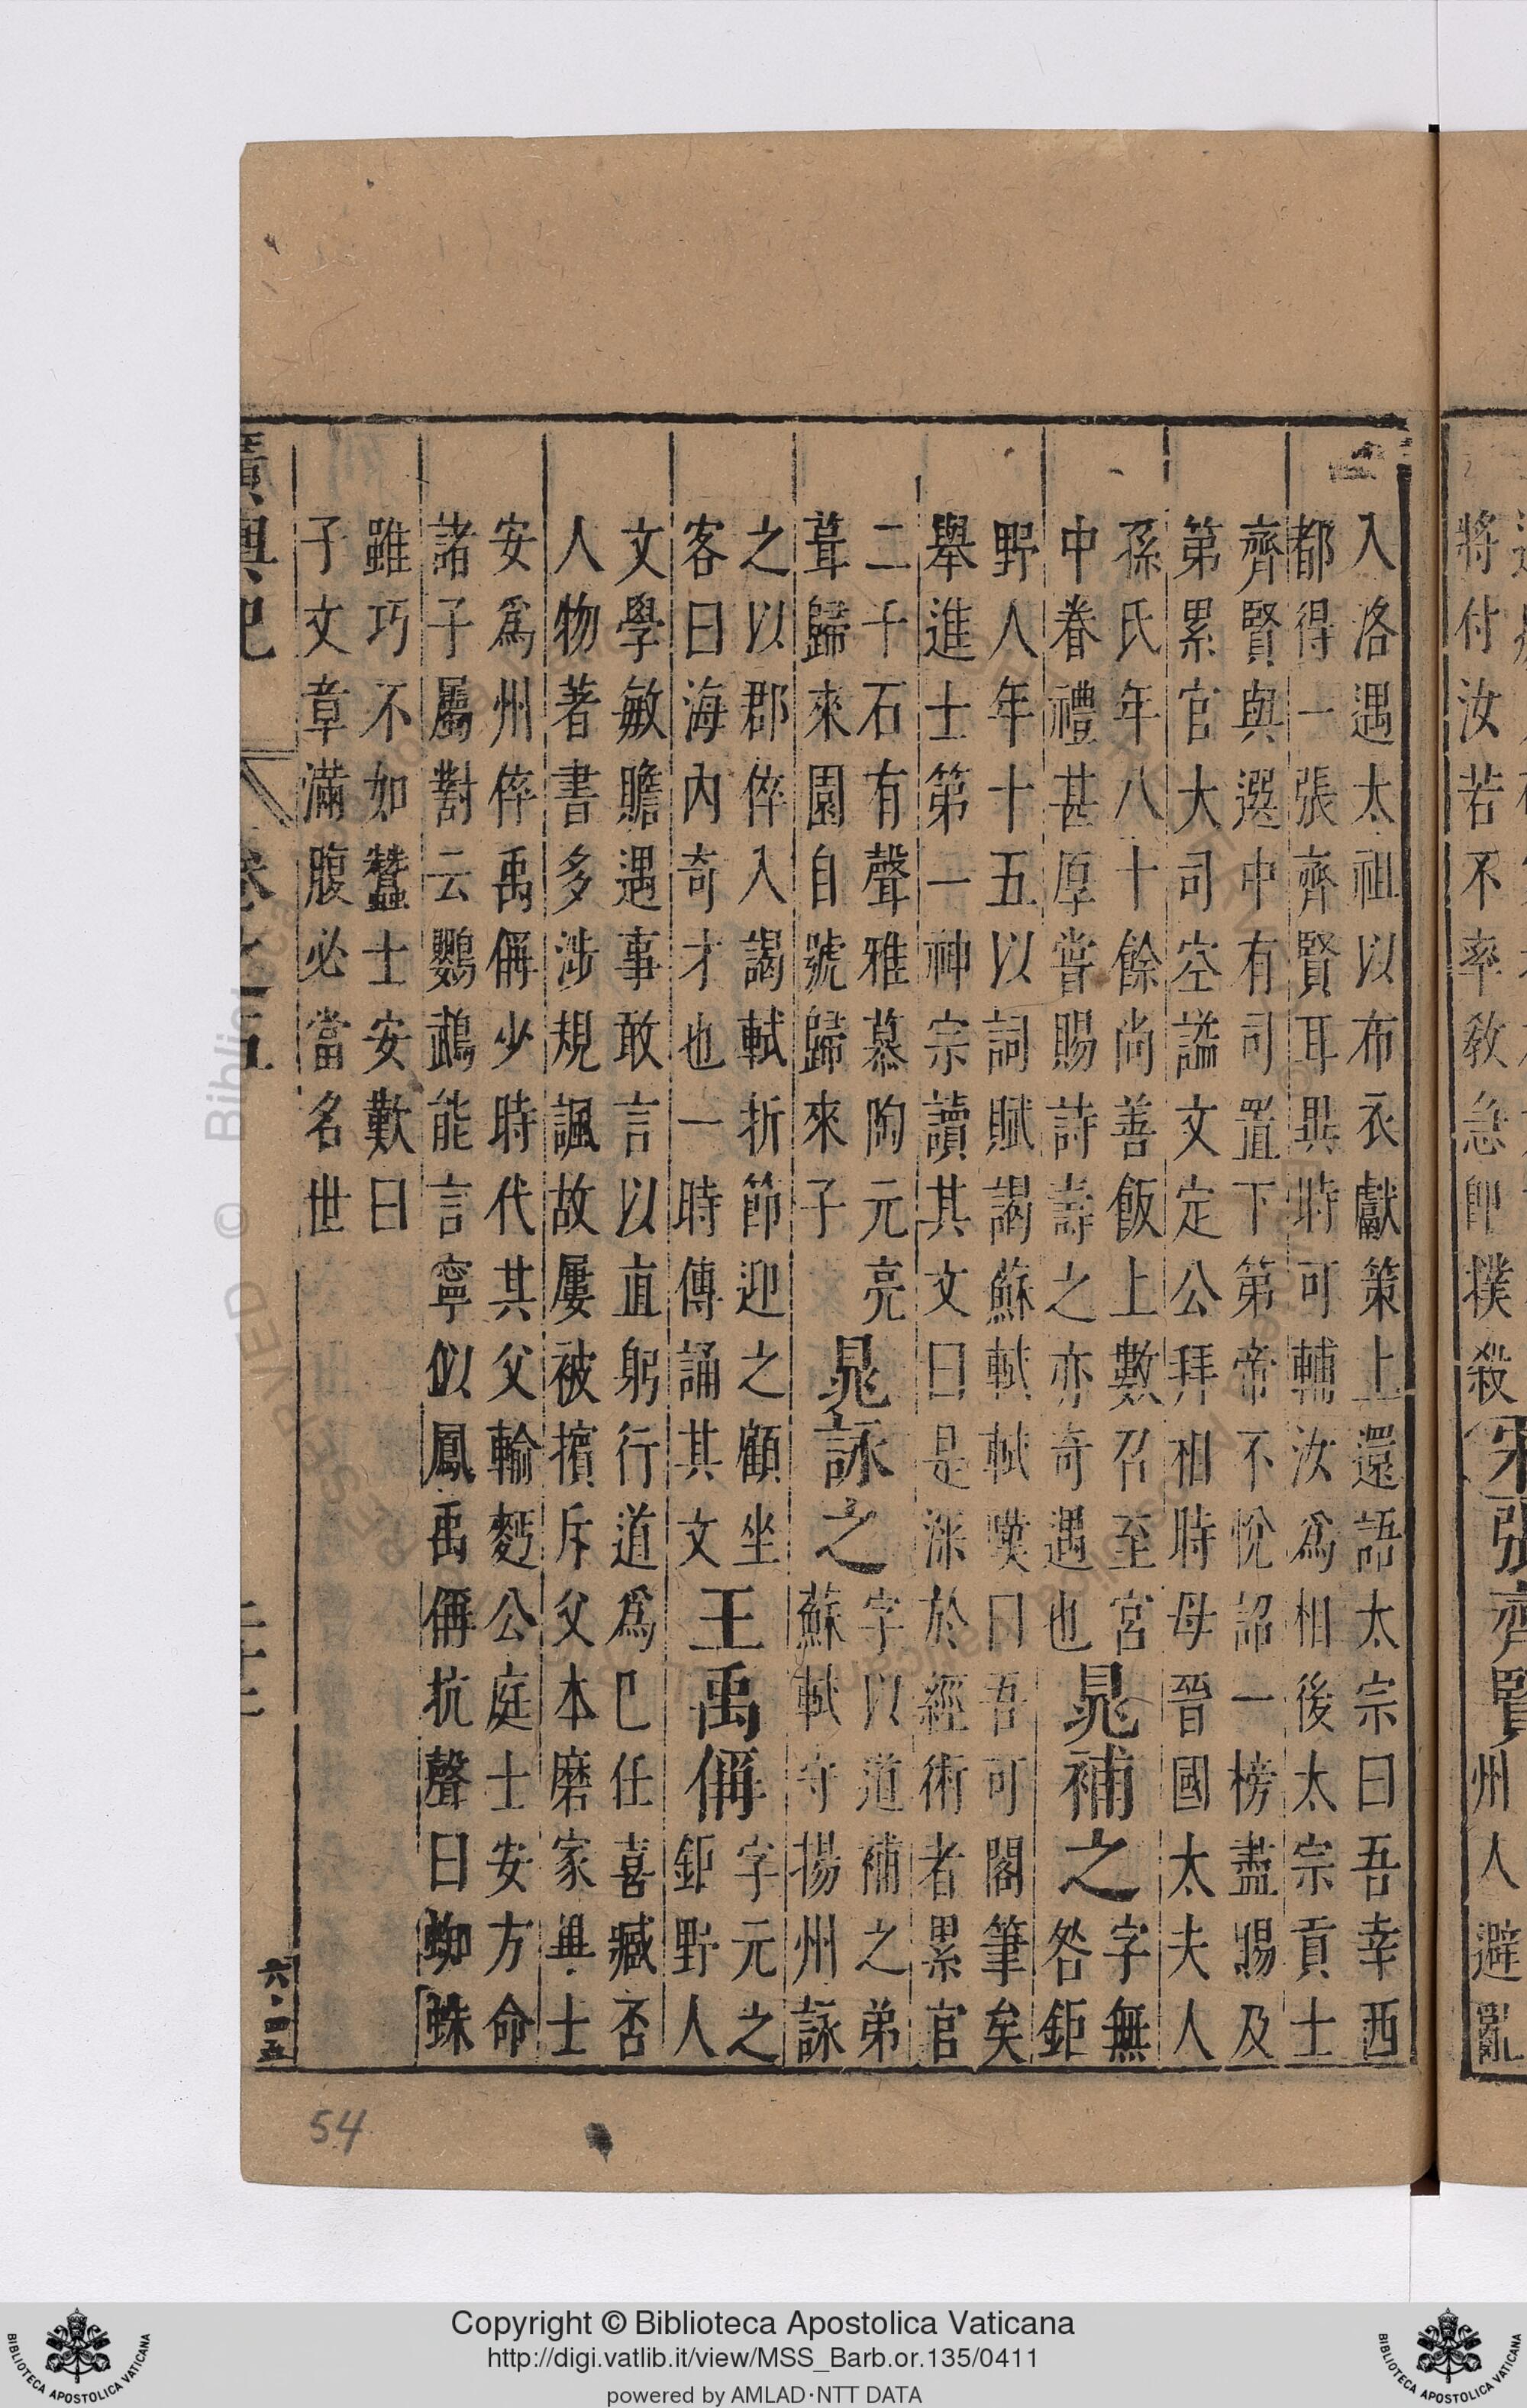 將付汝若不率教急卽撲殺宋張齊賢州人避亂
入洛遇太祖以布衣獻策上還語太宗曰吾幸西
都得一張齊賢耳異時可輔汝爲相後太宗貢士
齊賢與選中有司置下第帝不悅詔一榜盡賜及
第累官大司空謚文定公拜相時母晉國太夫人
孫氏年八十餘尚善飯上數召至宮
中眷禮甚厚嘗賜詩壽之亦奇遇也
晁補之
字無
咎鉅
野人年十五以詞賦謁蘇軾軾嘆曰吾可閣筆矣
舉進士第一神宗讀其文曰是深於經術者累官
二千石有聲雅慕陶元亮
葺歸來園自號歸來子
晁詠之
字以道補之弟
蘇軾守揚州詠
之以郡倅入謁軾折節迎之顧坐
客曰海內奇才也一時傳誦其文
王禹偁
字元之
鉅野人
文學敏贍遇事敢言以直躬行道爲已任喜臧否
人物著書多涉規諷故屢被擯斥父本磨家畢士
安爲州倅禹偁少時代其父輸麪公庭士安方命
諸子屬對云鸚鵡能言寧似鳳禹偁抗聲曰蜘蛛
雖巧不如蠶士安歎曰
子文章滿腹必當名世
廣輿記 卷之五
六·四五
54
Copyright © Biblioteca Apostolica Vaticana
http://digi.vatlib.it/view/MSS_Barb.or.135/0411
powered by AMLAD·NTT DATA
BIBLIOTECA APOSTOLICA VATICANA
BIBLIOTECA APOSTOLICA VATICANA